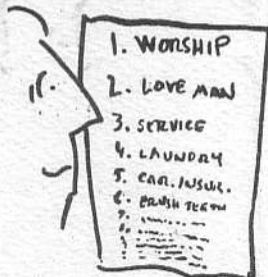 1. WORSHIP
2. LOVE MAN
3. SERVICE
4. LAUNDRY
5. CAR. INSUR.
6. BRUSH TEETH
7.